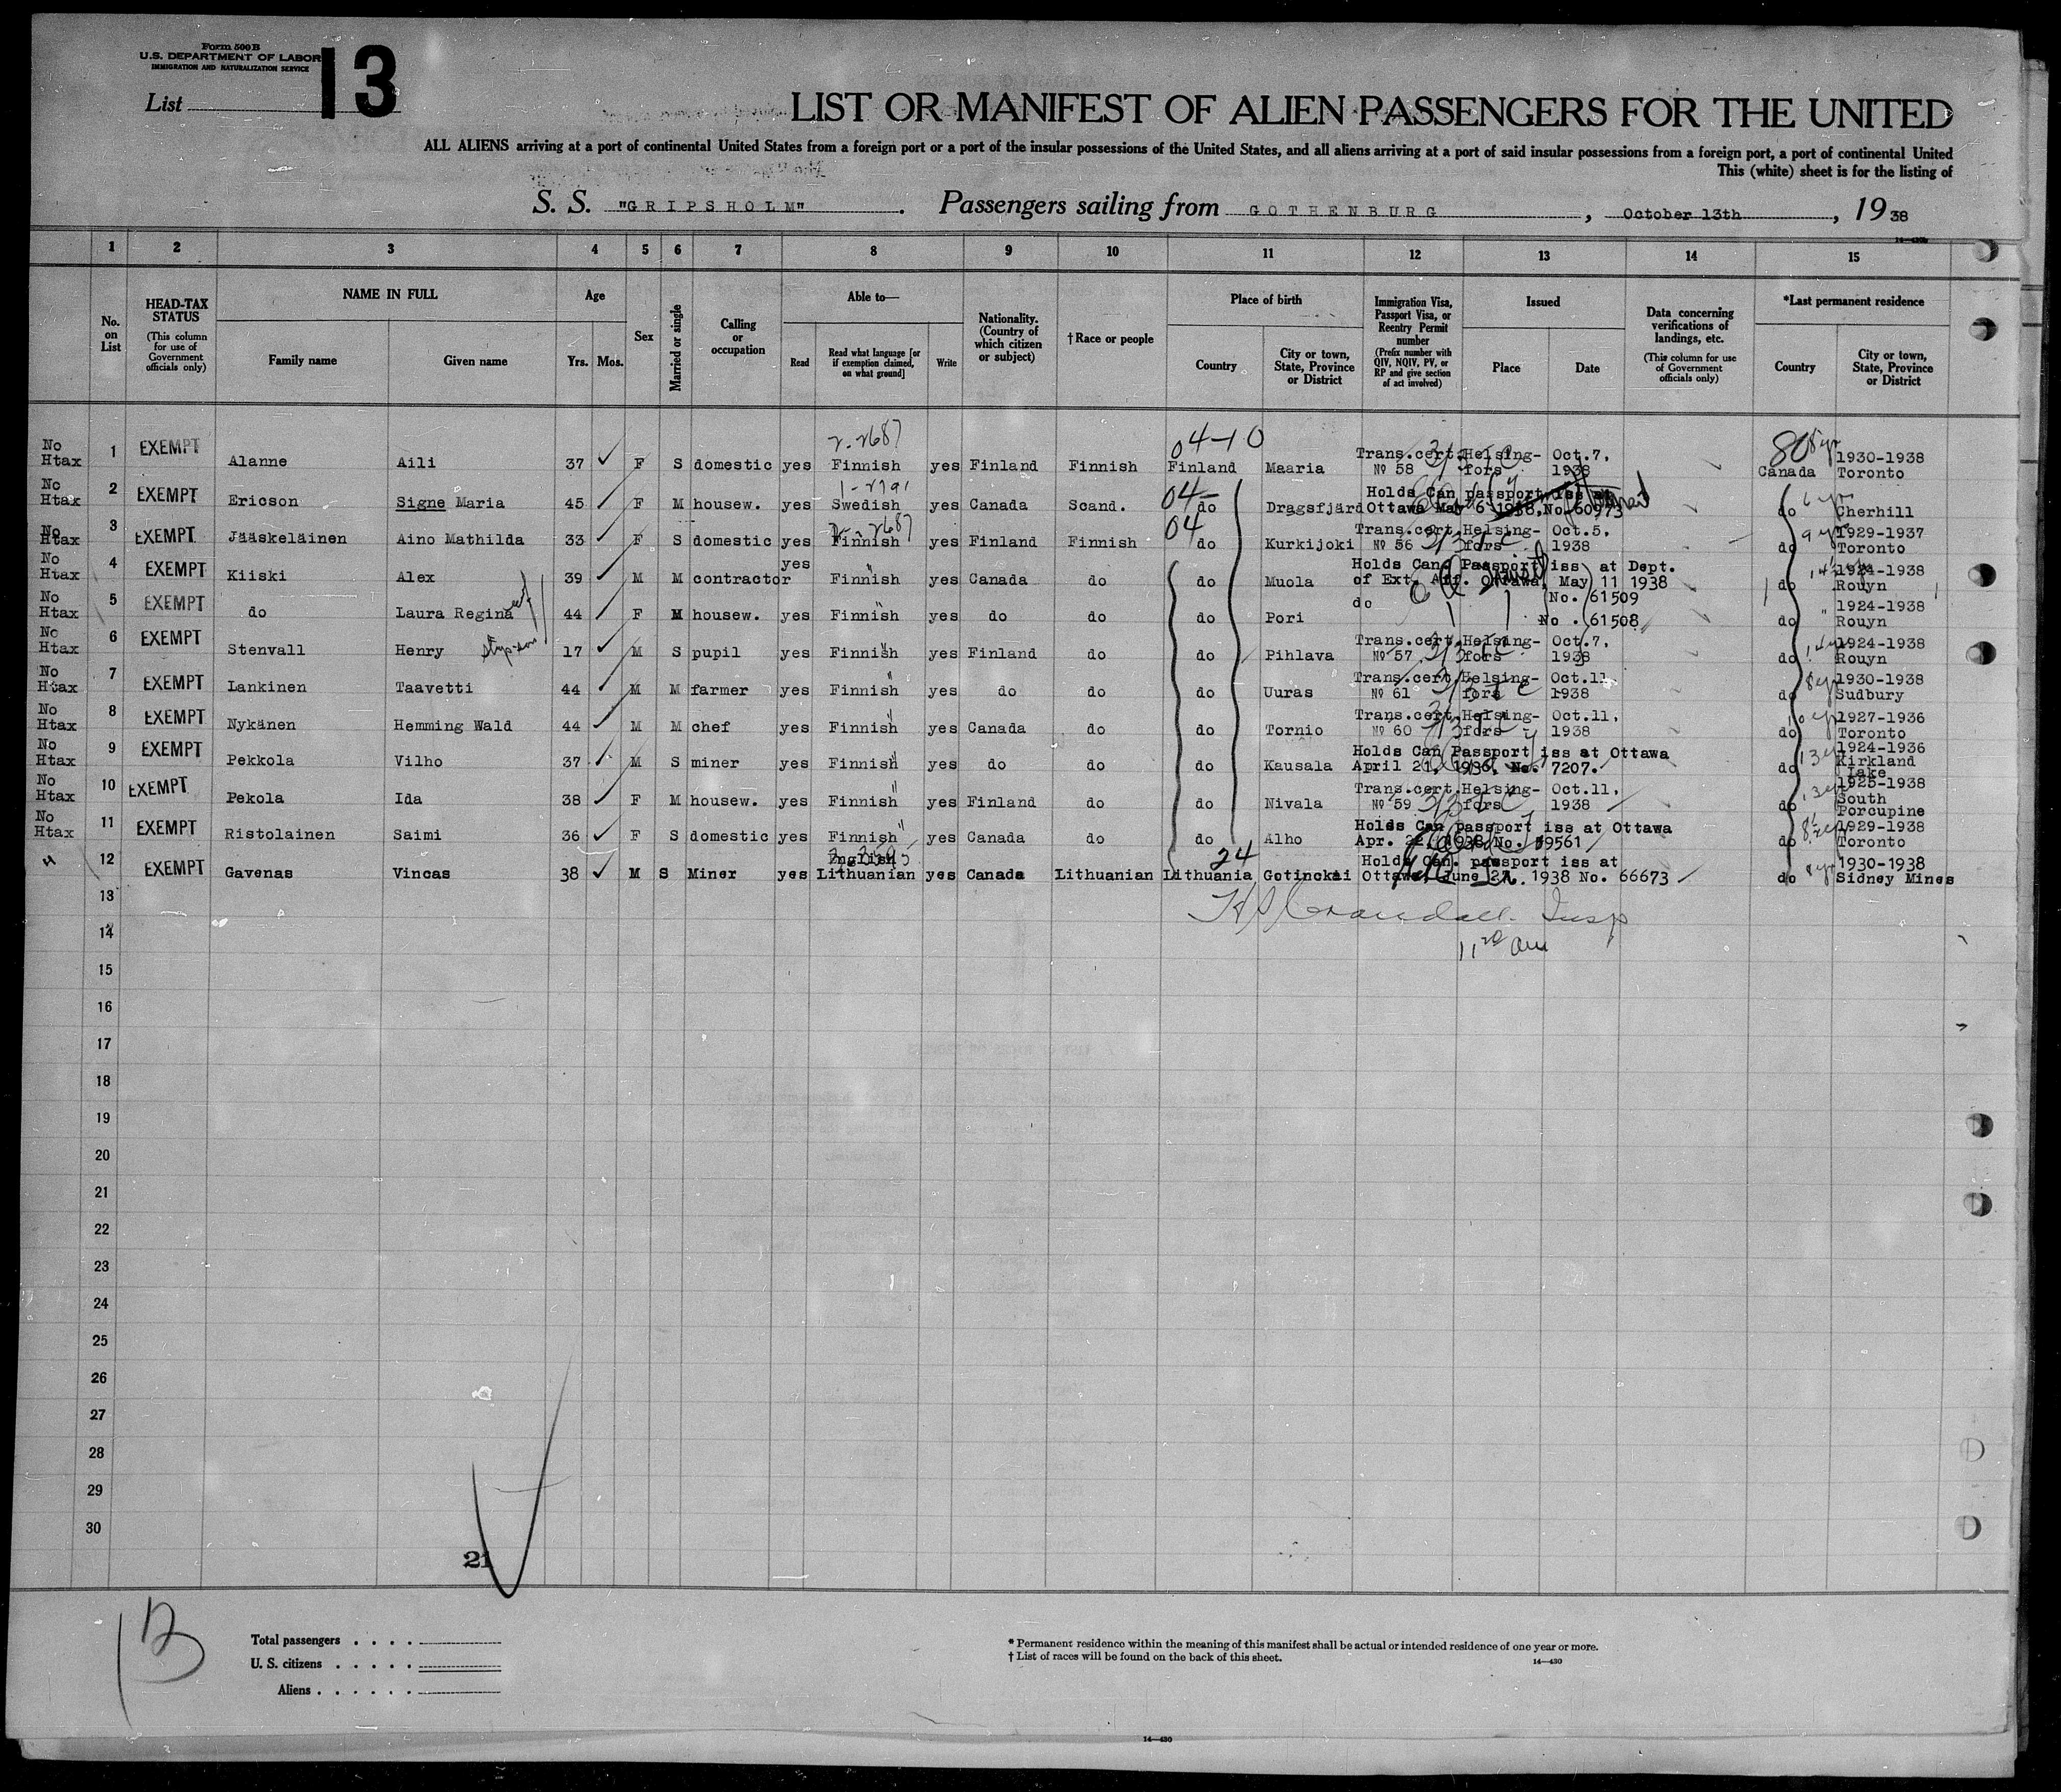 Form 500 B
U.S. DEPARTMENT OF LABOR
IMMIGRATION AND NATURALIZATION SERVICE
List 13
LIST OR MANIFEST OF ALIEN PASSENGERS FOR THE UNITED
ALL ALIENS arriving at a port of continental United States from a foreign port or a port of the insular possessions of the United States, and all aliens arriving at a port of said insular possessions from a foreign port, a port of continental United
This (white) sheet is for the listing of
S. S. "GRIPSHOLM". Passengers sailing from GOTHENBURG, October 13th, 19 38
1 2 3 4 5 6 7 8 9 10 11 12 13 14 15
No. on List
HEAD-TAX STATUS (This column for use of Government officials only)
NAME IN FULL Family name Given name
Age Yrs. Mos.
Sex
Married or single
Calling or occupation
Able to— Read Read what language [or if exemption claimed, on what ground] Write
Nationality. (Country of which citizen or subject)
† Race or people
Place of birth Country City or town, State, Province or District
Immigration Visa, Passport Visa, or Reentry Permit number (Prefix number with QIV, NQIV, PV, or RP and give section of act involved)
Issued Place Date
Data concerning verifications of landings, etc. (This column for use of Government officials only)
*Last permanent residence Country City or town, State, Province or District
No Htax 1 EXEMPT Alanne Aili 37 F S domestic yes Finnish yes Finland Finnish Finland Maaria Trans.cert. Nº 58 Helsingfors Oct.7, 1938 Canada 1930-1938 Toronto
No Htax 2 EXEMPT Ericson Signe Maria 45 F M housew. yes Swedish yes Canada Scand. do Dragsfjärd Holds Can passport iss at Ottawa May 6 1938, No. 60973 do Cherhill
No Htax 3 EXEMPT Jääskeläinen Aino Mathilda 33 F S domestic yes Finnish yes Finland Finnish do Kurkijoki Trans.cert. Nº 56 Helsingfors Oct.5, 1938 do 1929-1937 Toronto
No Htax 4 EXEMPT Kiiski Alex 39 M M contractor yes Finnish yes Canada do do Muola Holds Can Passport iss at Dept. of Ext. Aff. Ottawa, May 11 1938 No. 61509 do 1924-1938 Rouyn
No Htax 5 EXEMPT do Laura Regina 44 F M housew. yes Finnish yes do do do Pori do No. 61508 do 1924-1938 Rouyn
No Htax 6 EXEMPT Stenvall Henry step-son 17 M S pupil yes Finnish yes Finland do do Pihlava Trans.cert. Nº 57 Helsingfors Oct.7, 1938 do 1924-1938 Rouyn
No Htax 7 EXEMPT Lankinen Taavetti 44 M M farmer yes Finnish yes do do do Uuras Trans.cert. Nº 61 Helsingfors Oct.11 1938 do 1930-1938 Sudbury
No Htax 8 EXEMPT Nykänen Hemming Wald 44 M M chef yes Finnish yes Canada do do Tornio Trans.cert. Nº 60 Helsingfors Oct.11, 1938 do 1927-1936 Toronto
No Htax 9 EXEMPT Pekkola Vilho 37 M S miner yes Finnish yes do do do Kausala Holds Can Passport iss at Ottawa April 21, 1936, No. 7207. do 1924-1936 Kirkland Lake
No Htax 10 EXEMPT Pekola Ida 38 F M housew. yes Finnish yes Finland do do Nivala Trans.cert. Nº 59 Helsingfors Oct.11, 1938 do 1925-1938 South Porcupine
No Htax 11 EXEMPT Ristolainen Saimi 36 F S domestic yes Finnish yes Canada do do Alho Holds Can passport iss at Ottawa Apr. 22, 1938 No. 59561 do 1929-1938 Toronto
12 EXEMPT Gavenas Vincas 38 M S Miner yes English Lithuanian yes Canada Lithuanian Lithuania Gotinckai Holds Can. passport iss at Ottawa, June 27. 1938 No. 66673 do 1930-1938 Sidney Mines
13
14
11 20 am
15
16
17
18
19
20
21
22
23
24
25
26
27
28
29
30
21
12
Total passengers . . . .
U. S. citizens . . . . .
Aliens . . . . . .
* Permanent residence within the meaning of this manifest shall be actual or intended residence of one year or more.
† List of races will be found on the back of this sheet.
14—430
14—430